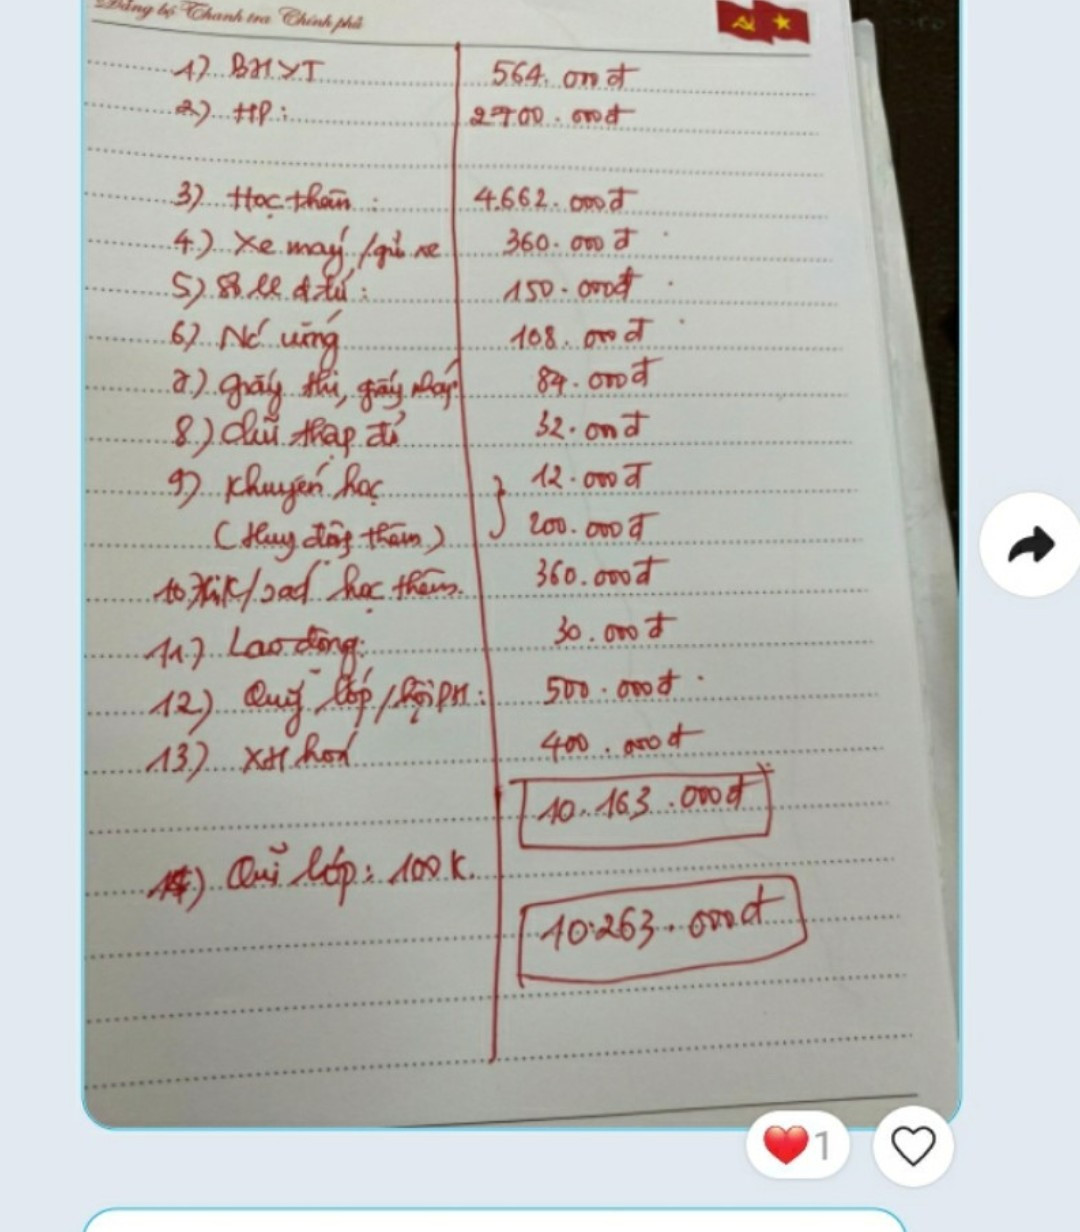 Đảng bộ Thanh tra Chính phủ
1) BHYT 564.000đ
2) HP: 2700.000đ
3) Học thêm: 4.662.000đ
4.) Xe máy/gửi xe 360.000đ
5) Sổ ll đ.tử: 150.000đ
6) Nc uống 108.000đ
7.) giấy thi, giấy nháp 84.000đ
8.) Chữ thập đỏ 32.000đ
9) Khuyến học 12.000đ
(Huy động thêm) 200.000đ
10) học thêm. 360.000đ
11.) Lao động: 30.000đ
12) Quỹ lớp/hội PH: 500.000đ
13) XH hoá 400.000đ
10.163.000đ
14) Quĩ lớp: 100K.
10.263.000đ
1